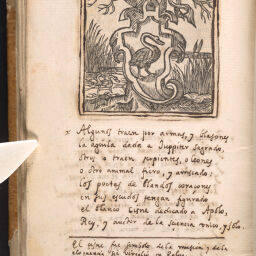 Algunos traen por armas, y blasones
la aguila dada a Iuppiter Sagrado,
otros traen serpientes, o leones
o otro animal fiero, y arriscado:
los poetas de blandos corazones
en sus escudos tengan figurado
el blanco Cisne dedicado a Apolo,
Rey, y author de la sciencia unico, y solo.
El cisne fue symbolo de la musica, y de la